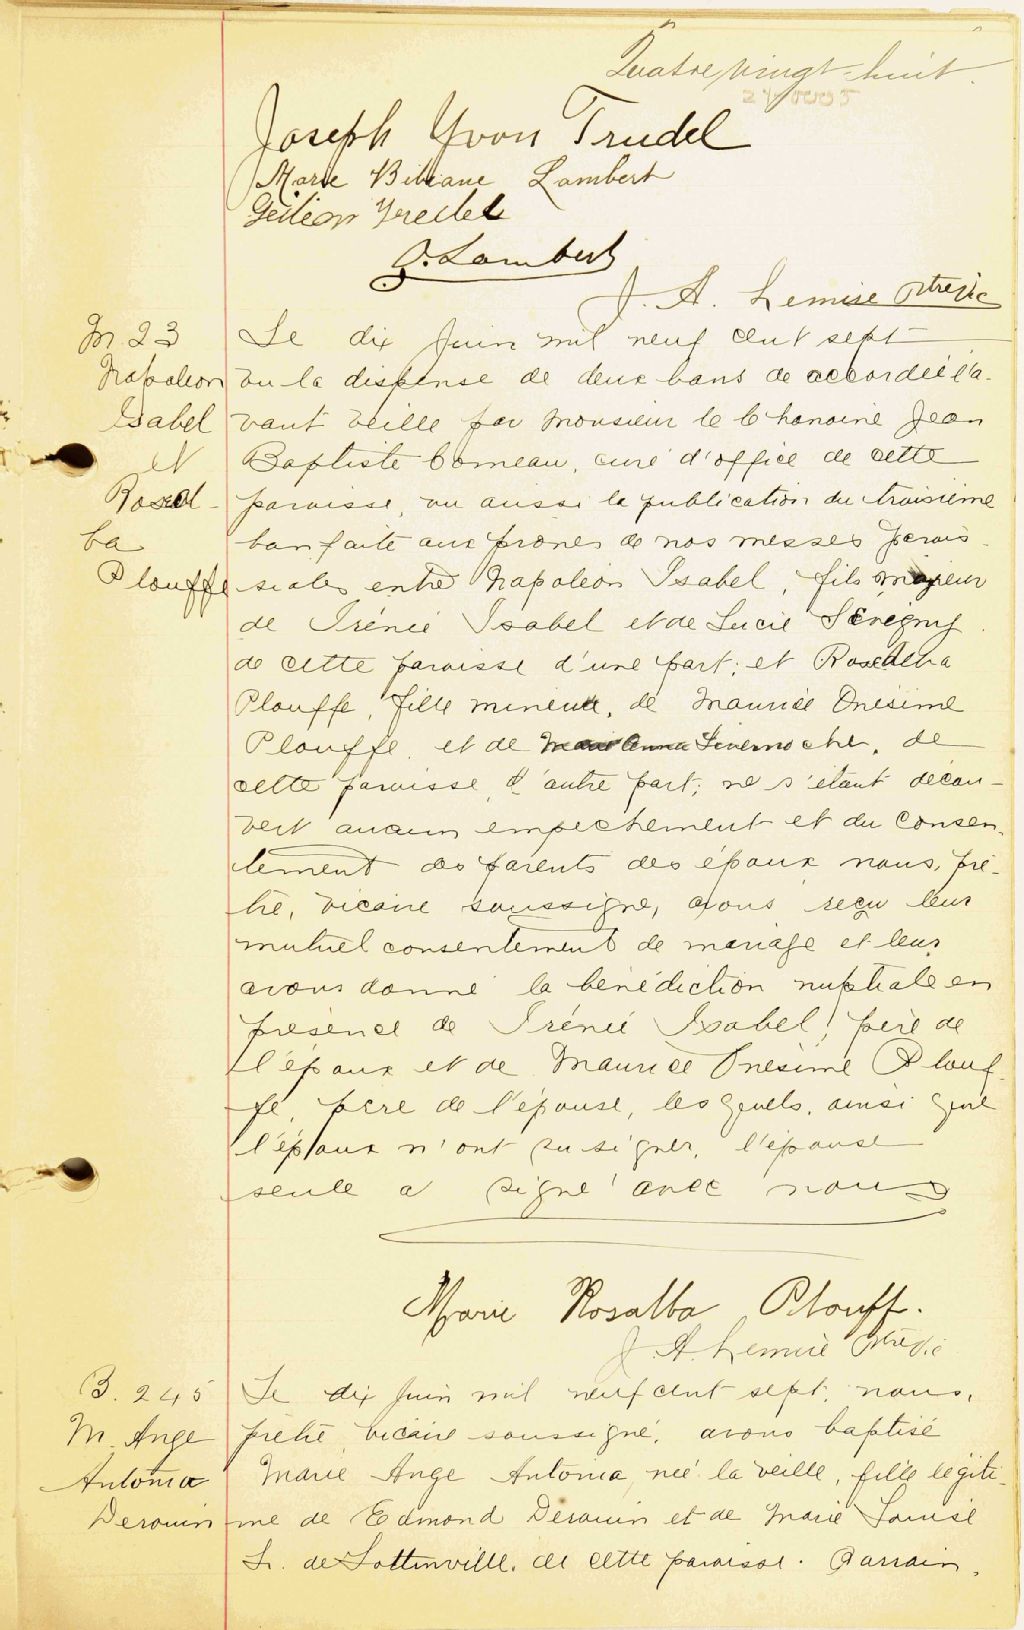 Quatre vingt-huit.
Joseph Yvon Trudel
Marie Bibiane Lambert
Trudel
O. Lambert
J. A. Lemire Ptre Vic
M. 23
Napoléon
Isabel
et
Rosal-
ba
Plouffe
Le dix Juin mil neuf cent sept
vu la dispense de deux bans de accordée l'a-
vant veille par Monsieur le Chanoine Jean
Baptiste Comeau, curé d'office de cette
paroisse, vu aussi la publication du troisième
ban faite aux prônes de nos messes parois-
siales entre Napoléon Isabel, fils majeur
de Irénée Isabel et de Lucie Sévigny
de cette paroisse d'une part; et Rosalba
Plouffe, fille mineure, de Maurice Onésime
Plouffe et de Anna Livernoche, de
cette paroisse, d'autre part; ne s'étant décou-
vert aucun empêchement et du consen-
tement des parents des époux nous, prê-
tre, vicaire soussigné, avons reçu leur
mutuel consentement de mariage et leur
avons donné la bénédiction nuptiale en
présence de Irénée Isabel, père de
l'époux et de Maurice Onésime Plouf-
fe, père de l'épouse, lesquels, ainsi que
l'époux n'ont su signer, l'épouse
seule a signé avec nous
Marie Rosalba Plouff.
J. A. Lemire Ptre Vic
B. 245
M. Ange
Antonia
Derouin
Le dix Juin mil neuf cent sept, nous,
prêtre vicaire soussigné, avons baptisé
Marie Ange Antonia, née la veille, fille légiti-
me de Edmond Derouin et de Marie Louise
L. de Lottinville, de cette paroisse. Parrain,